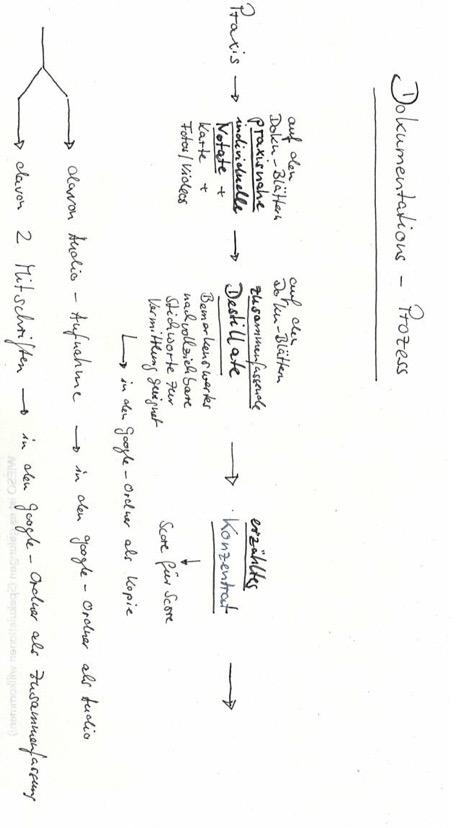 Dokumentations - Prozess
Praxis →
auf den
Doku-Blättern
praxisnahe
individuelle
Notate +
Karte +
Fotos/Videos
→
auf den
Doku-Blättern
zusammenfassende
Destillate
Bemerkenswertes
nachvollziehbare
Stichworte zur
Vermittlung geeignet
→ in den google-Ordner als Kopie
→
erzähltes
Konzentrat
↓
Score für Score
→
→ davon Audio-Aufnahme → in den google-Ordner als Audio
→ davon 2 Mitschriften → in den google-Ordner als Zusammenfassung